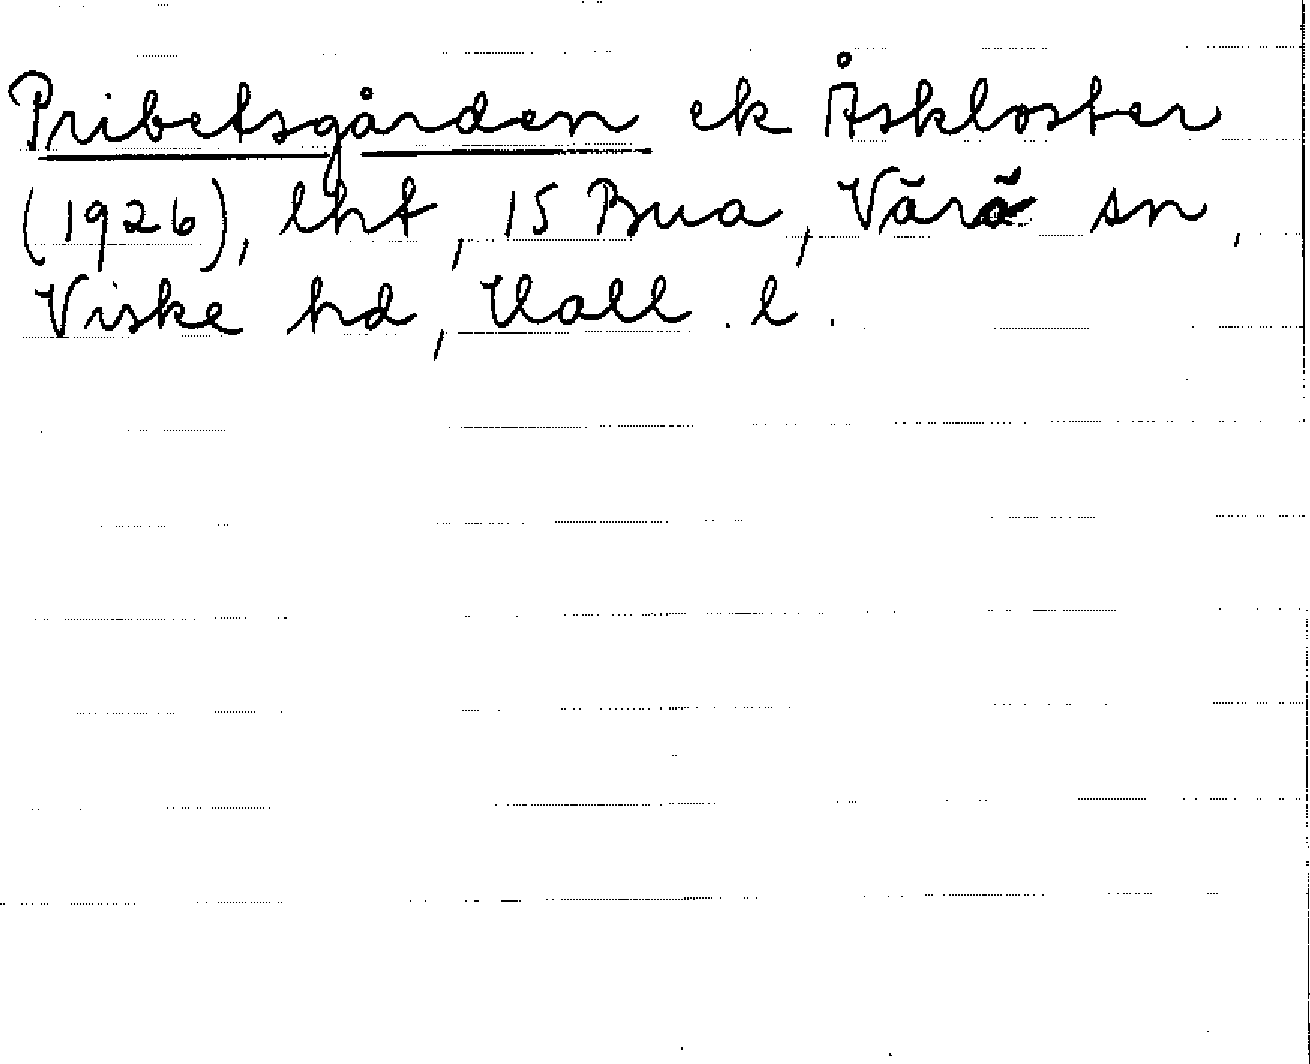 Pribetsgården ek Åskloster
(1926), lht, 15 Bua, Värö sn,
Viske hd, Hall. l.